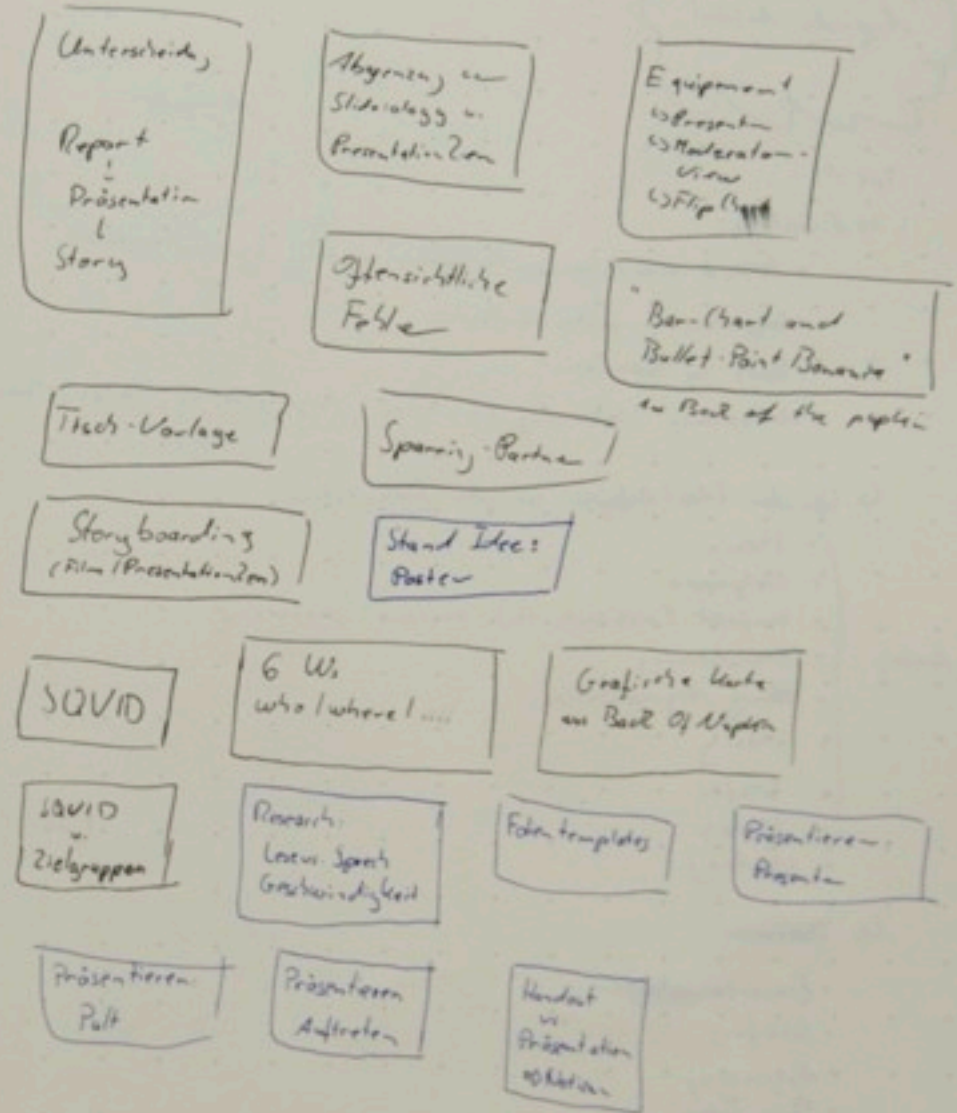 Unterscheidung
Report
Präsentation
Story
Abgrenzung zu
Slideology u.
PresentationZen
Equipment
↳ Presenter
↳ Moderatoren-
view
↳ Flip Chart
Offensichtliche
Fehler
"Bar-Chart and
Bullet-Point Bonanza"
Back of the napkin
Tisch-Vorlage
Sparring-Partner
Storyboarding
(Film / PresentationZen)
Stand Idee:
Poster
SQVID
6 Ws
who / where / ....
Grafische Karte
Back Of Napkin
SQVID
vs.
Zielgruppen
Research:
Lese vs. Sprech
Geschwindigkeit
Folientemplates
Präsentieren:
Presenter
Präsentieren
Pult
Präsentieren
Auftreten
Handout
vs
Präsentation
⇒ Notizen